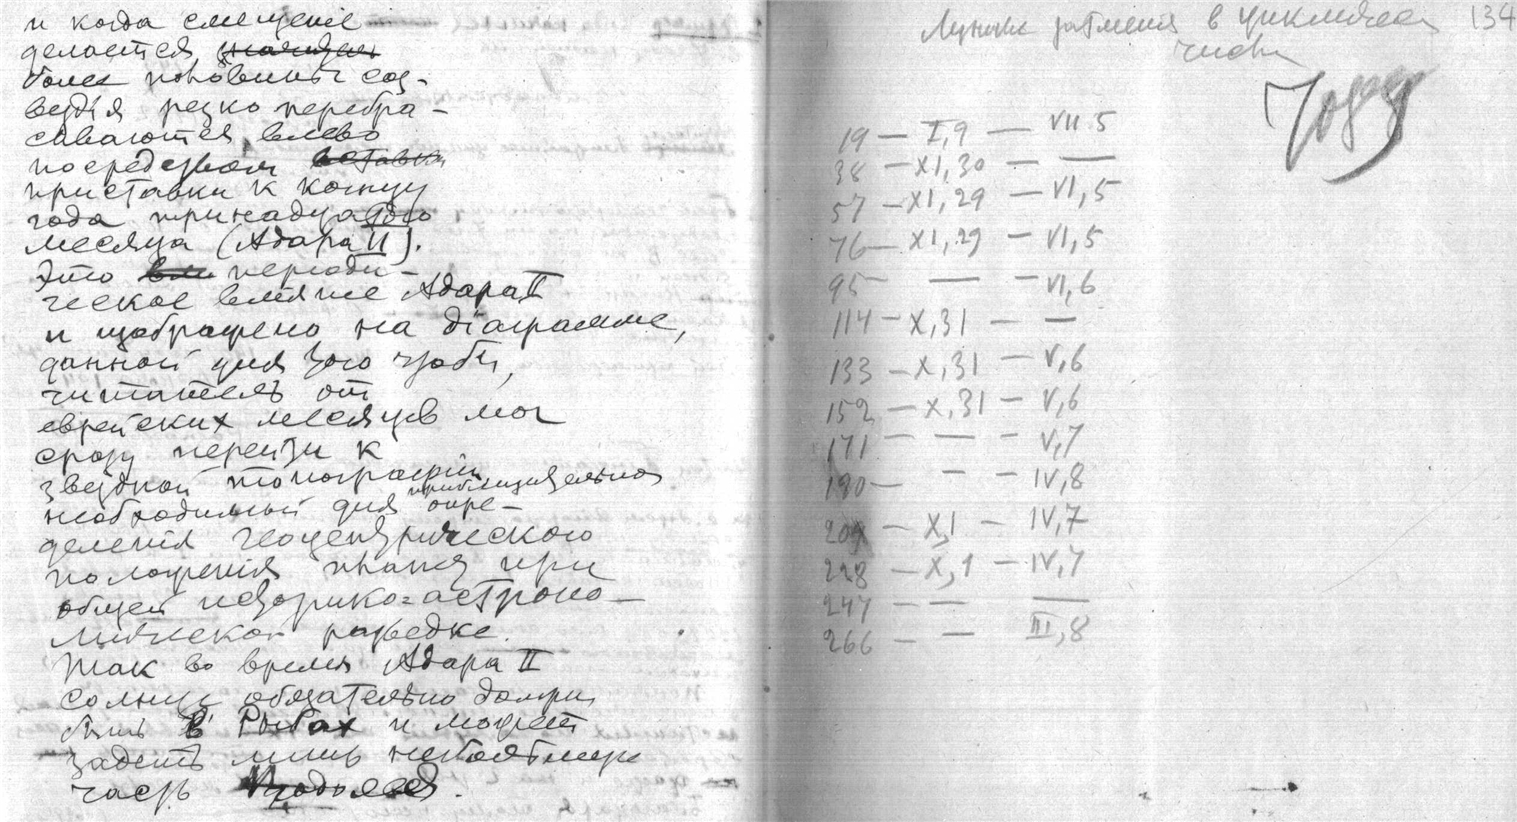 и когда смещение
делается
более половины соз-
вездiя резко перебра-
сываются влево
посредством вставки
приставки к концу
года тринадцатого
месяца (Адара II).
Это перiоди-
ческое влiянiе Адара II
и изображено на дiаграмме,
данной для того чтобы,
читатель от
еврейских месяцев мог
сразу перейти к
звездной топографiи
приблизительно
необходимый для опре-
деленiя геоцентрического
положенiя планет при
общей историко-астроно-
мической разведке.
Так во время Адара II
солнце обязательно должно
быть в Рыбах и может
задеть лишь небольшую
часть Водолея.
Лунные затменiя в циклических 134
числах
19 — I,9 — VII.5
38 — XI,30 — —
57 — XI,29 — VI,5
76 — XI,29 — VI,5
95 — — — VI,6
114 — X,31 — —
133 — X,31 — V,6
152 — X,31 — V,6
171 — — — V,7
190 — — — IV,8
209 — X,1 — IV,7
228 — X,1 — IV,7
247 — — —
266 — — III,8